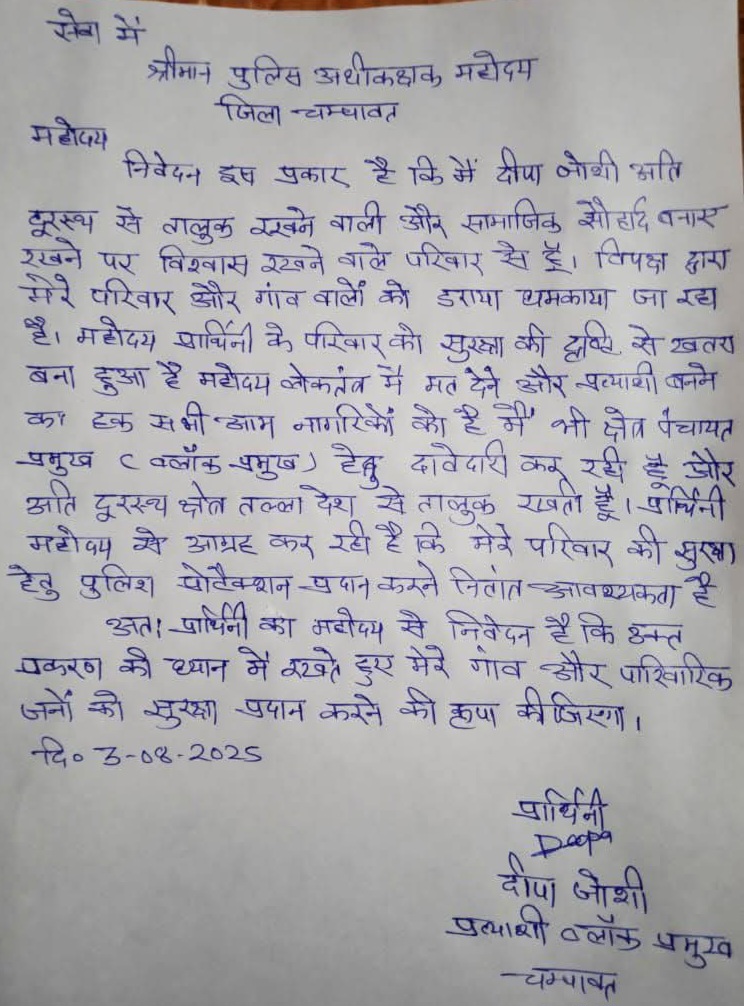 सेवा में
श्रीमान पुलिस अधीकक्षक महोदय
जिला चम्पावत
महोदय
निवेदन इस प्रकार है कि मैं दीपा जोशी अति
दूरस्थ से तालुक रखने वाली और सामाजिक सौहार्द बनाए
रखने पर विश्वास रखने वाले परिवार से हूँ। विपक्ष द्वारा
मेरे परिवार और गांव वालों को डराया धमकाया जा रहा
है। महोदय प्रार्थिनी के परिवार को सुरक्षा की दृष्टि से खतरा
बना हुआ है महोदय लोकतंत्र में मत देने और प्रत्याशी बनने
का हक सभी आम नागरिकों को है मैं भी क्षेत्र पंचायत
प्रमुख (ब्लॉक प्रमुख) हेतु दावेदारी कर रही हूँ और
अति दूरस्थ क्षेत्र तल्ला देश से तालुक रखती हूँ। प्रार्थिनी
महोदय से आग्रह कर रही है कि मेरे परिवार की सुरक्षा
हेतु पुलिश प्रोटैक्शन प्रदान करने नितांत आवश्यकता है
अतः प्रार्थिनी का महोदय से निवेदन है कि उक्त
प्रकरण को ध्यान में रखते हुए मेरे गांव और पारिवारिक
जनों को सुरक्षा प्रदान करने की कृपा कीजिएगा।
दि० 3-08-2025
प्रार्थिनी
Deepa
दीपा जोशी
प्रत्याशी ब्लॉक प्रमुख
चम्पावत